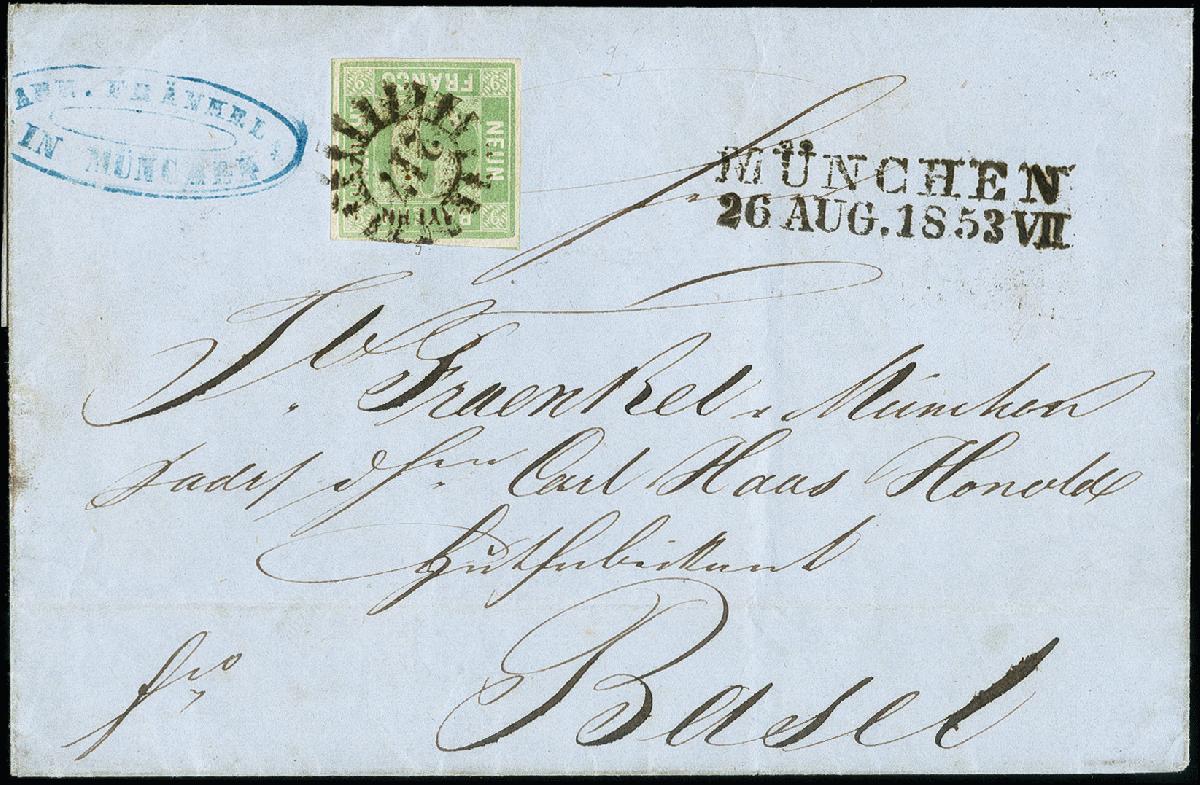 ABR. FRÄNKEL
IN MÜNCHEN
FRANCO
NEUN
BAYERN
217
MÜNCHEN
26 AUG. 1853 VII
Fraenkel v München
Carl Haas Honold
Hutfabrikant
fro
Basel